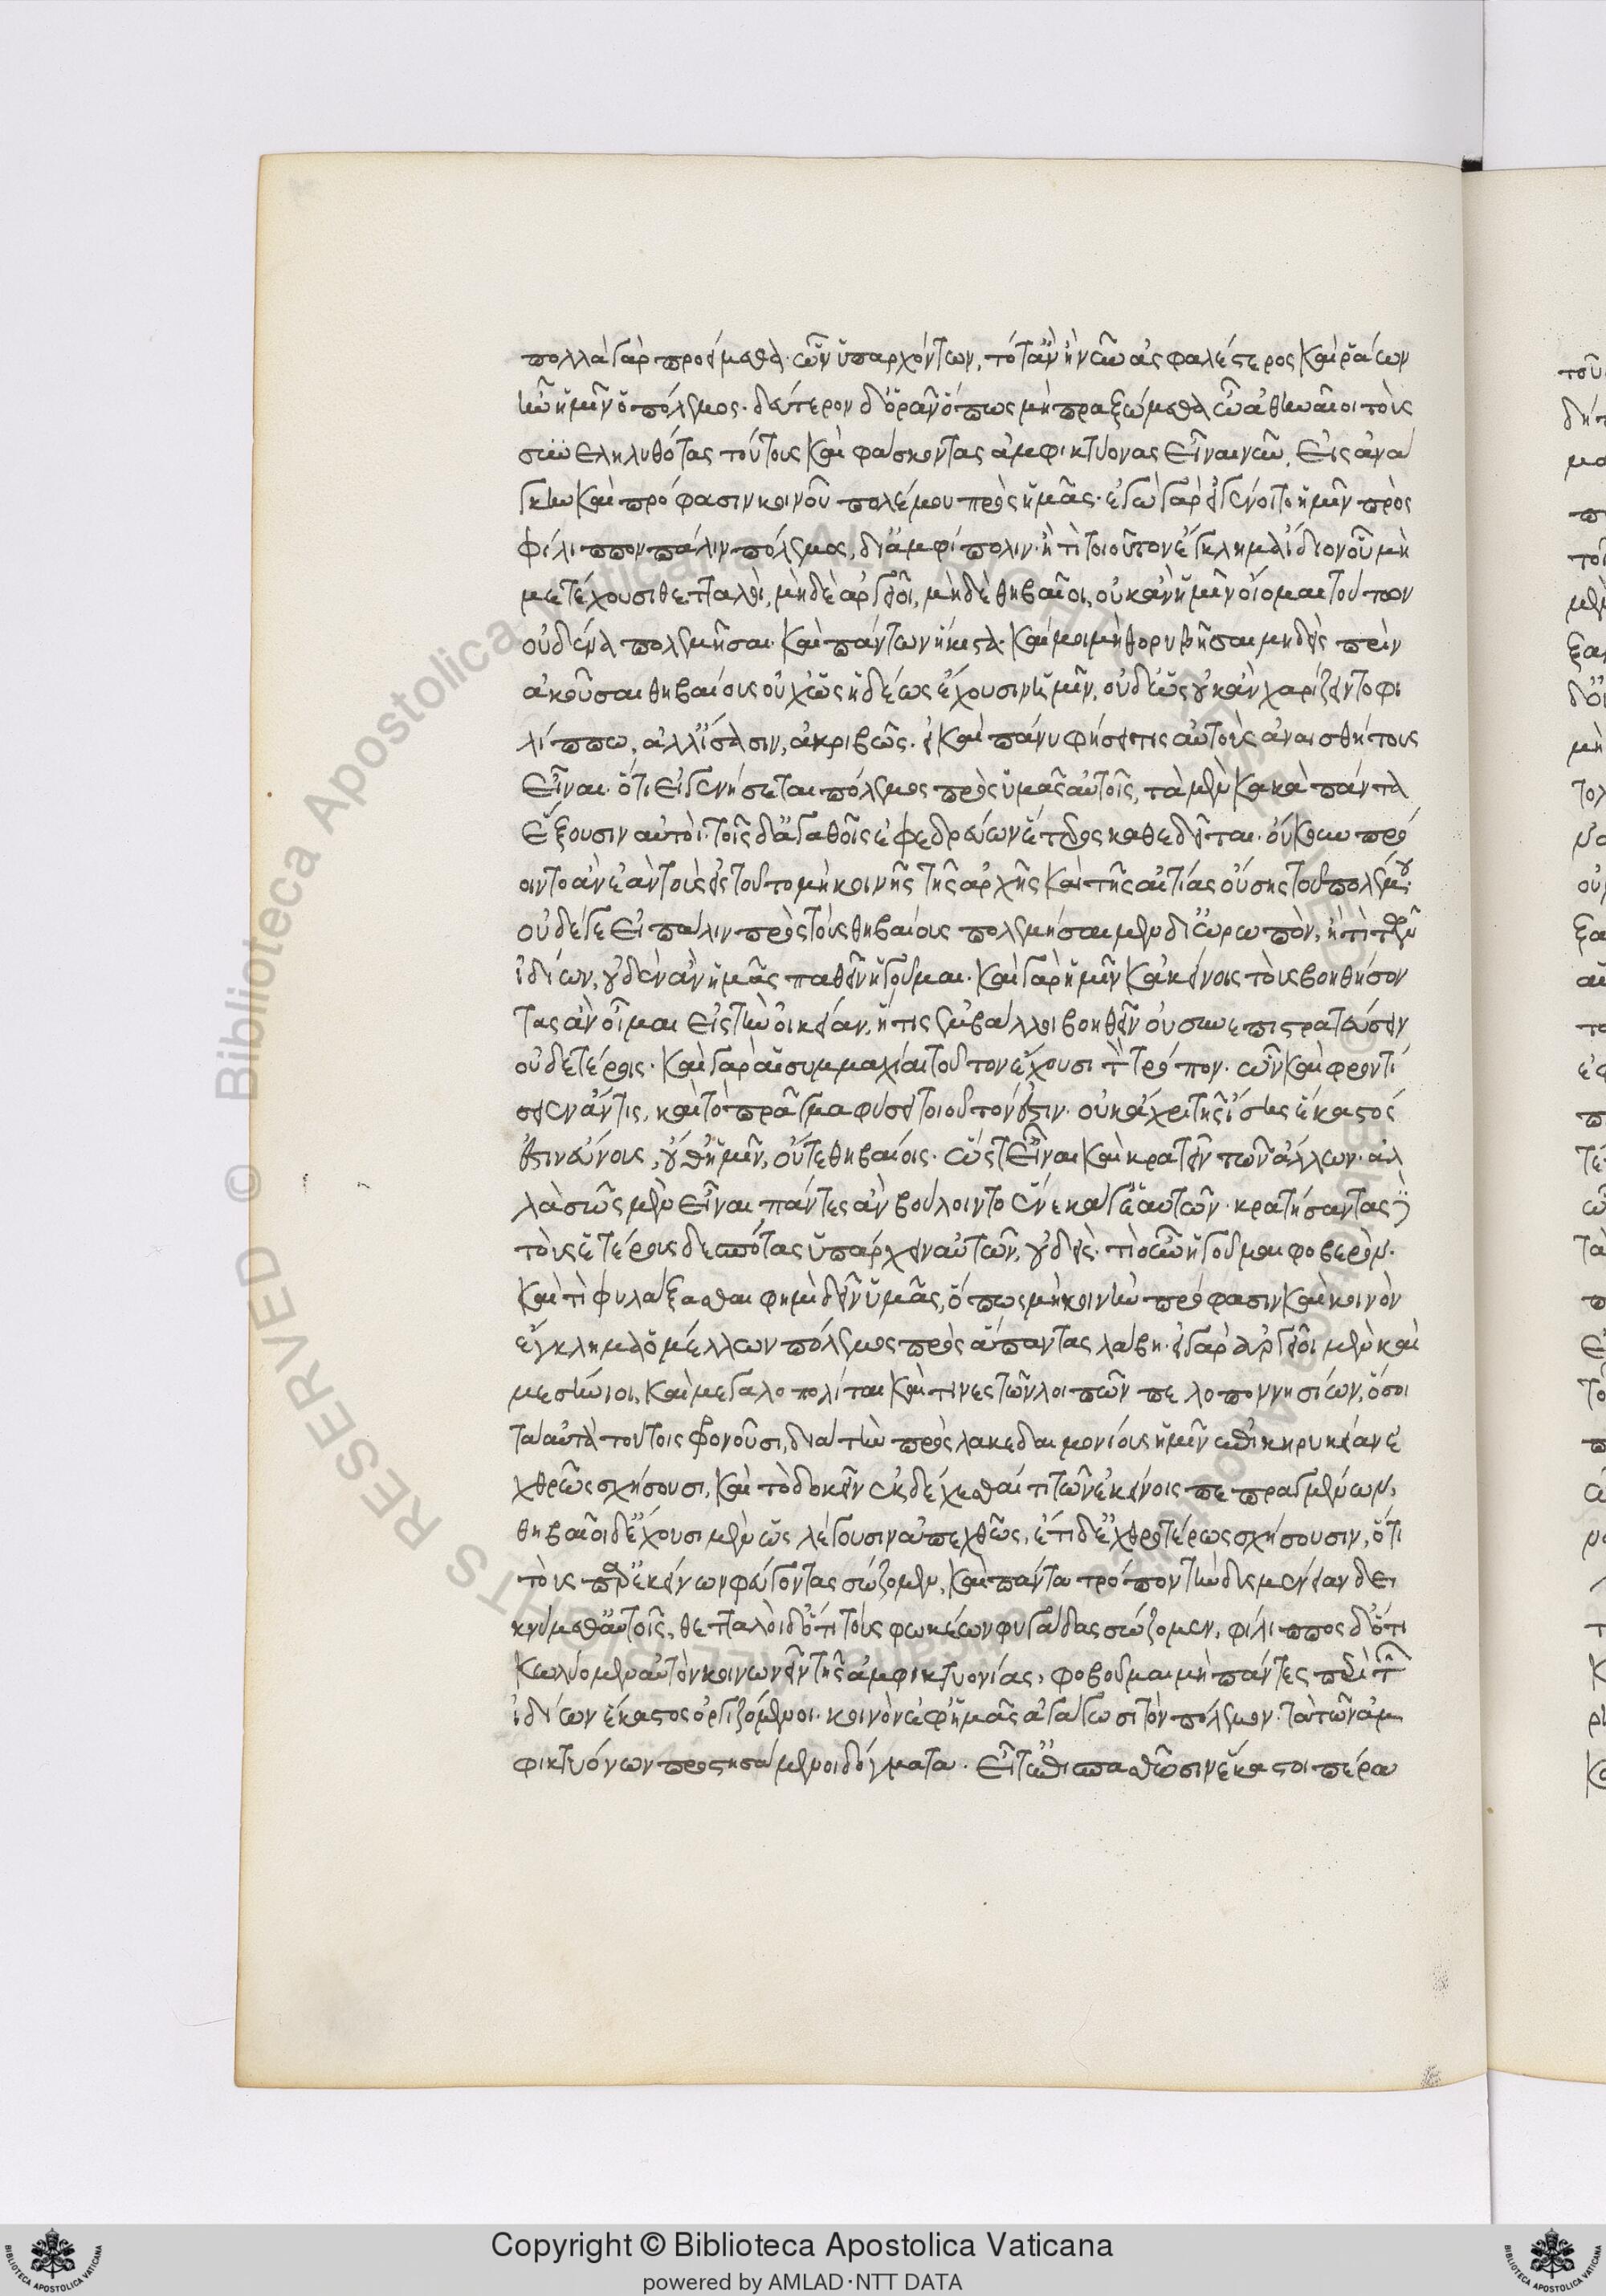 πολλὰ γὰρ προείμεθα· ὧν ὑπαρχόντων, τότ' ἂν ἢ νῦν ἀσφαλέστερος καὶ ῥάων
ἦν ἡμῖν ὁ πόλεμος. δεύτερον δ' ὁρᾶν ὅπως μὴ πραξώμεθα ὦ ἀθηναῖοι τοὺς
συνεληλυθότας τούτους καὶ φάσκοντας ἀμφικτύονας εἶναι νῦν, εἰς ἀνά
γκην καὶ πρόφασιν κοινοῦ πολέμου πρὸς ἡμᾶς. ἐγὼ γὰρ εἰ γένοιτο ἡμῖν πρὸς
φίλιππον πάλιν πόλεμος, δι' ἀμφίπολιν· ἤ τι τοιοῦτον ἔγκλημα ἴδιον οὗ μὴ
μετέχουσι θετταλοὶ, μὴδὲ ἀργεῖοι, μὴδὲ θηβαῖοι, οὐκ ἂν ἡμῖν οἴομαι τούτων
οὐδένα πολεμῆσαι· καὶ πάντων ἥκιστα· καί μοι μὴ θορυβήσαι μηδεὶς πρὶν
ἀκοῦσαι θηβαίους οὐχ ὡς ἡδέως ἔχουσιν ἡμῖν, οὐδ' ὡς οὐκ ἂν χαρίζοιντο φι
λίππω, ἀλλ' ἴσασιν, ἀκριβῶς. εἰ καὶ πάνυ φήσει τις αὐτοὺς ἀναισθήτους
εἶναι· ὅτι εἰ γενήσεται πόλεμος πρὸς ὑμᾶς αὐτοῖς, τὰ μὲν κακὰ πάντα
ἕξουσιν αὐτοὶ· τοῖς δ' ἀγαθοῖς ἐφεδρεύων ἕτερος καθεδεῖται. οὔκουν πρό
οιντο ἂν ἑαυτοὺς εἰς τοῦτο μὴ κοινῆς τῆς ἀρχῆς καὶ τῆς αἰτίας οὔσης τοῦ πολέμου.
οὐδέ γε εἰ πάλιν πρὸς τοὺς θηβαίους πολεμήσαιμεν δι' ὠρωπὸν, ἤ τι τῶν
ἰδίων, οὐδὲν ἂν ἡμᾶς παθεῖν ἡγοῦμαι. καὶ γὰρ ἡμῖν κἀκείνοις τοὺς βοηθήσον
τας ἂν οἶμαι εἰς τὴν οἰκείαν, εἴ τις ἐμβάλλοι βοηθεῖν οὐ συνεπιστρατεύσειν
οὐδετέροις. καὶ γὰρ αἱ συμμαχίαι τοῦτον ἔχουσι τὸν τρόπον. ὧν καὶ φροντί
σειεν ἄν τις, καὶ τὸ πρᾶγμα φύσει τοιοῦτόν ἐστιν. οὐκ ἄχρι τῆς ἴσης ἕκαστός
ἐστιν εὔνους, οὔθ' ἡμῖν, οὔτε θηβαίοις. ὥστ' εἶναι καὶ κρατεῖν τῶν ἄλλων· ἀλ
λὰ σῶς μὲν εἶναι πάντες ἂν βούλοιντο ἕνεκά γ' ἑαυτῶν· κρατήσαντας δὲ
τοὺς ἑτέρους δεσπότας ὑπάρχειν αὐτῶν, οὐδείς. τί οὖν ἡγοῦμαι φοβερὸν.
καὶ τί φυλάξασθαι φημὶ δεῖν ὑμᾶς, ὅπως μὴ κοινὴν πρόφασιν καὶ κοινὸν
ἔγκλημα ὁ μέλλων πόλεμος πρὸς ἅπαντας λάβη· εἰ γὰρ ἀργεῖοι μὲν καὶ
μεσσήνιοι, καὶ μεγαλοπολῖται καὶ τινες τῶν λοιπῶν πελοποννησίων, ὅσοι
ταὐτὰ τούτοις φρονοῦσι, διὰ τὴν πρὸς λακεδαιμονίους ἡμῖν ἐπικηρυκείαν ἐ
χθρῶς σχήσουσι, καὶ τὸ δοκεῖν ἐκδέχεσθαί τι τῶν ἐκείνοις πεπραγμένων,
θηβαῖοι δ' ἔχουσι μὲν ὡς λέγουσιν ἀπεχθῶς, ἔτι δ' ἐχθροτέρως σχήσουσιν, ὅτι
τοὺς παρ' ἐκείνων φεύγοντας σώζομεν, καὶ πάντα τρόπον τὴν δυσμένειαν δει
κνύμεθα αὐτοῖς, θετταλοὶ δ' ὅτι τοὺς φωκέων φυγάδας σώζομεν, φίλιππος δ' ὅτι
κωλύομεν αὐτὸν κοινωνεῖν τῆς ἀμφικτυονίας, φοβοῦμαι μὴ πάντες περὶ τῶν
ἰδίων ἕκαστος ὀργιζόμενοι· κοινὸν ἐφ' ἡμᾶς ἀγάγωσι τὸν πόλεμον· τὰ τῶν ἀμ
φικτυόνων προστησάμενοι δόγματα. εἶτ' ἐπισπασθῶσιν ἕκαστοι πέρα
Copyright © Biblioteca Apostolica Vaticana
powered by AMLAD·NTT DATA